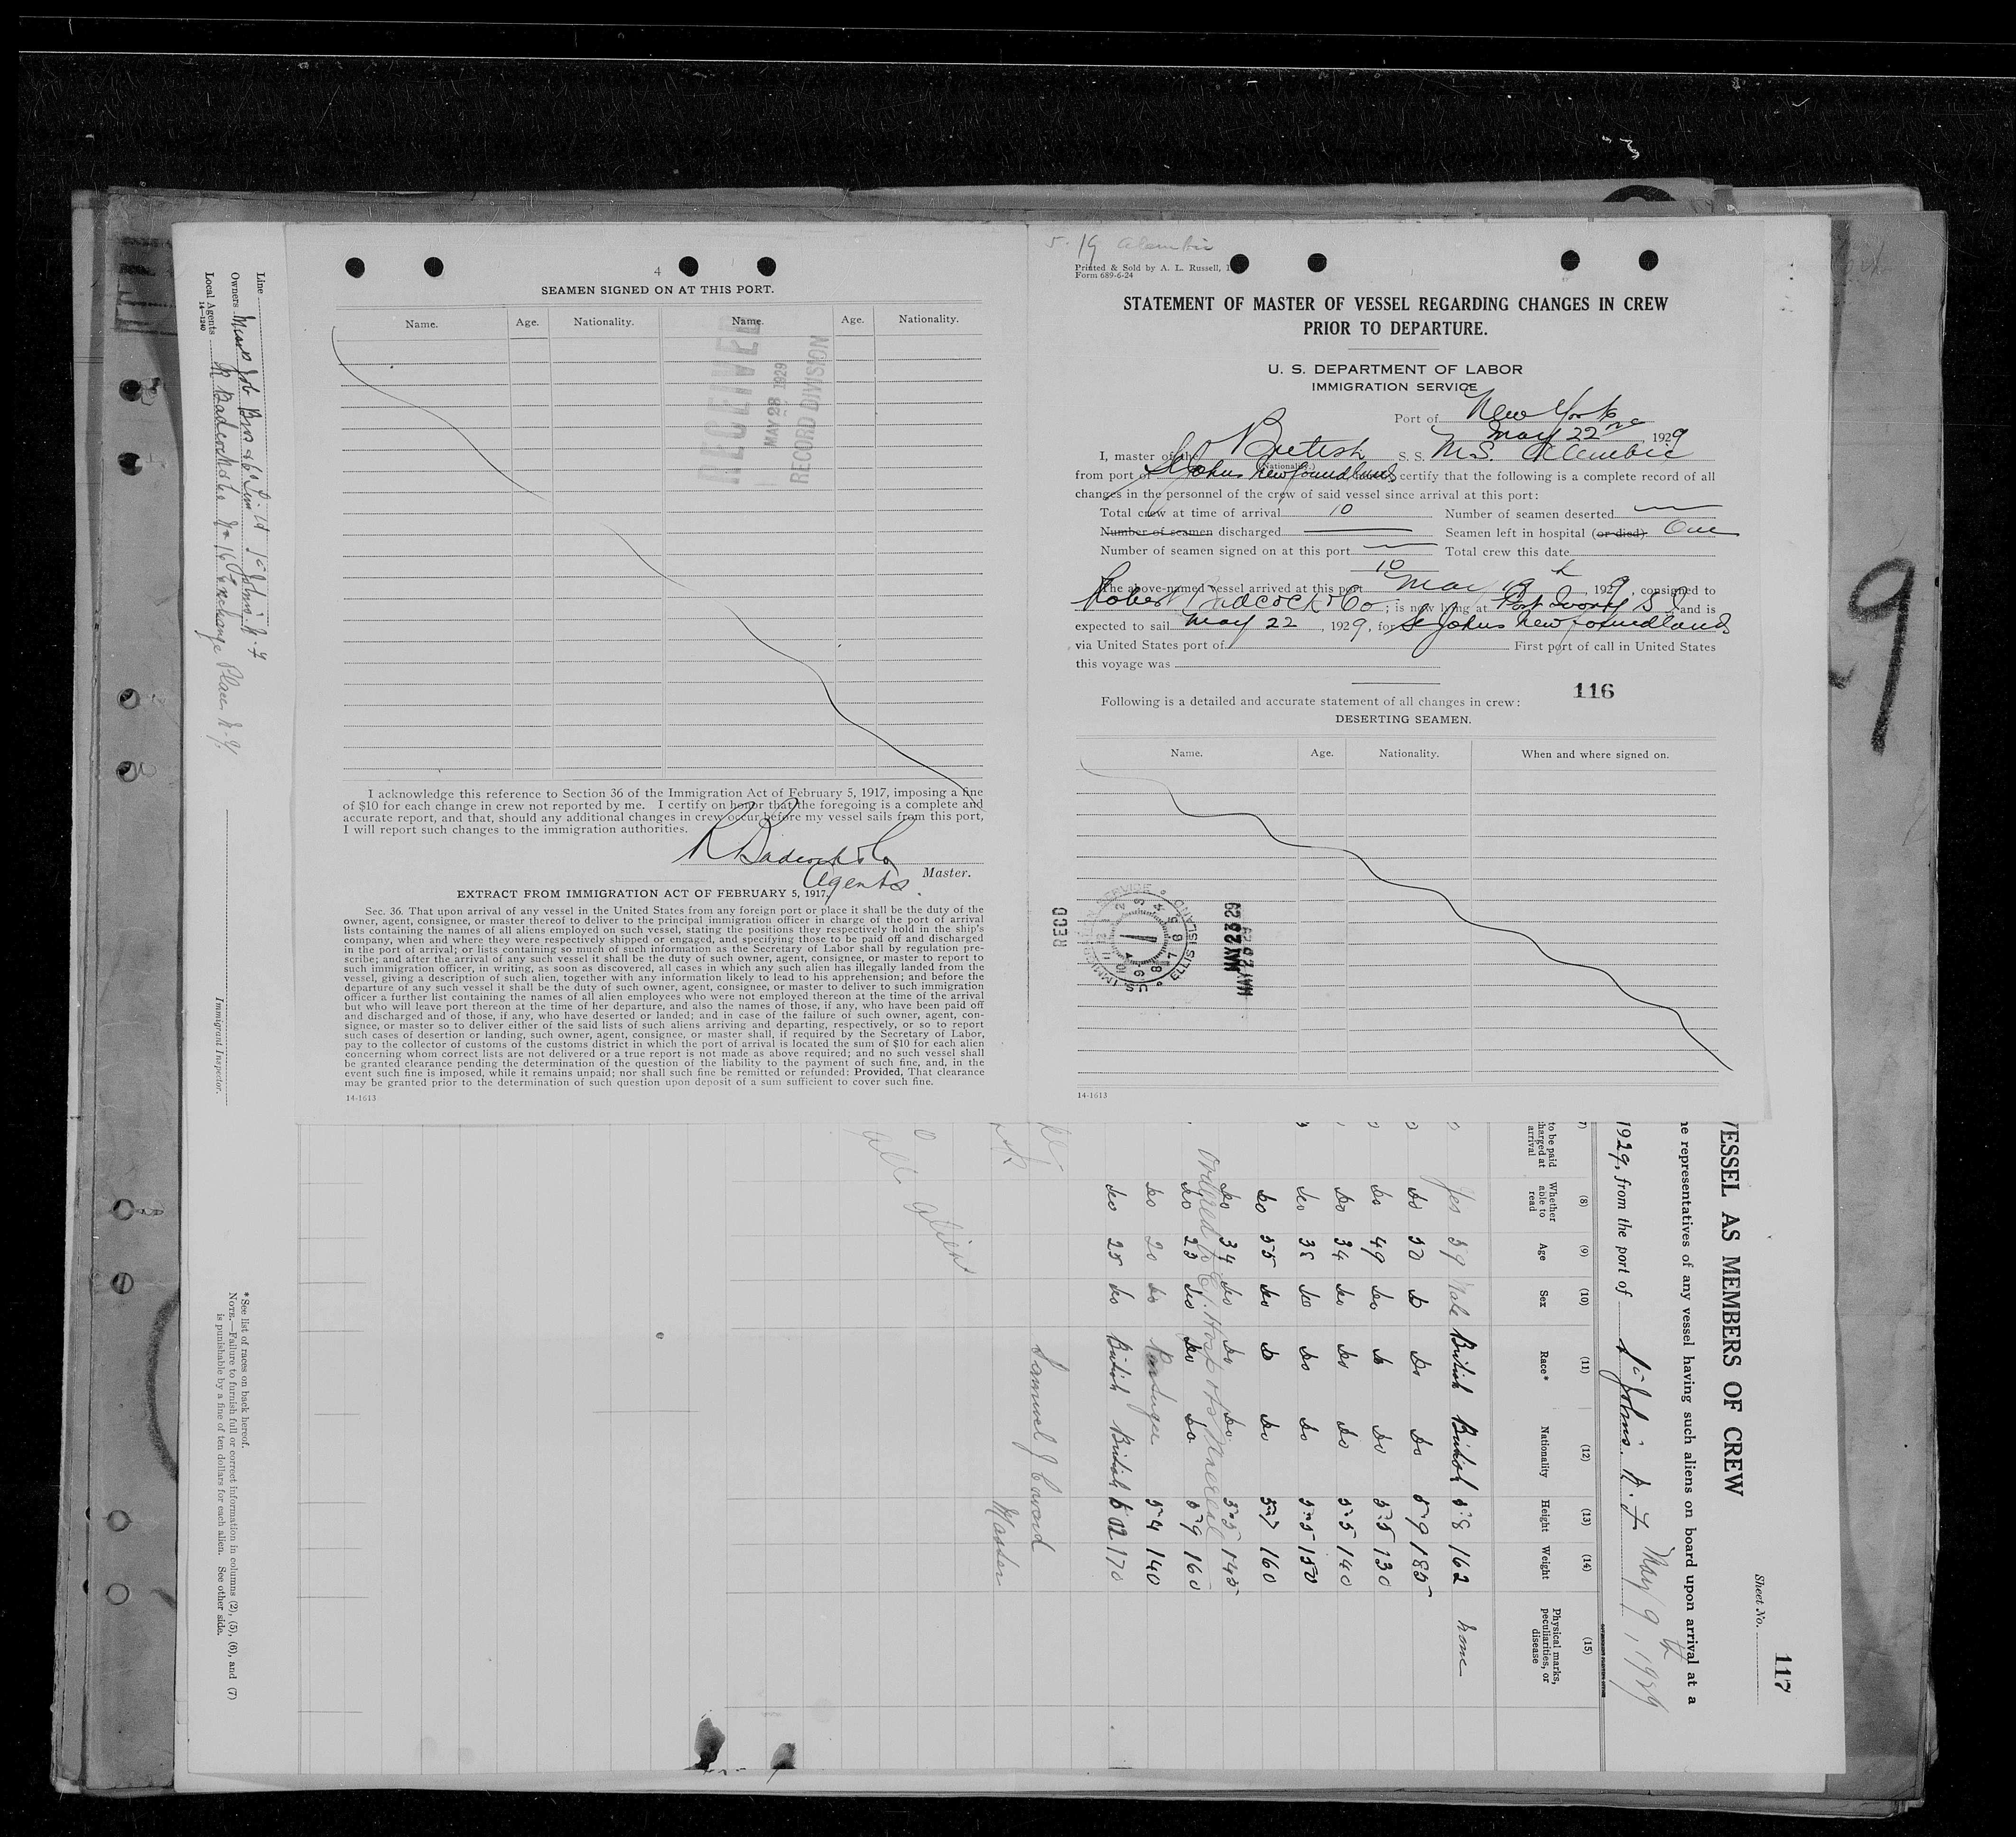 5-19 Alembic
Printed & Sold by A. L. Russell,
Form 689-6-24
STATEMENT OF MASTER OF VESSEL REGARDING CHANGES IN CREW
PRIOR TO DEPARTURE.
U. S. DEPARTMENT OF LABOR
IMMIGRATION SERVICE
Port of New York
May 22nd 1929
I, master of the British S. S. M.S. Alembic
(Nationality.)
from port of St Johns Newfoundland certify that the following is a complete record of all
changes in the personnel of the crew of said vessel since arrival at this port:
Total crew at time of arrival 10 Number of seamen deserted —
Number of seamen discharged — Seamen left in hospital (or died) One
Number of seamen signed on at this port — Total crew this date
10
The above-named vessel arrived at this port May 19th, 1929, consigned to
Robert Badcock & Co; is now lying at Port Ivory S I and is
expected to sail May 22, 1929, for St Johns Newfoundland
via United States port of First port of call in United States
this voyage was
116
Following is a detailed and accurate statement of all changes in crew:
DESERTING SEAMEN.
Name. Age. Nationality. When and where signed on.
RECD
U.S. IMMIGRATION SERVICE ELLIS ISLAND
MAY 23 29
MAY 23 29
14-1613
4
SEAMEN SIGNED ON AT THIS PORT.
Name. Age. Nationality. Name. Age. Nationality.
RECEIVED
MAY 28 1929
RECORD DIVISION
I acknowledge this reference to Section 36 of the Immigration Act of February 5, 1917, imposing a fine
of $10 for each change in crew not reported by me. I certify on honor that the foregoing is a complete and
accurate report, and that, should any additional changes in crew occur before my vessel sails from this port,
I will report such changes to the immigration authorities.
R Badcock & Co
Agents. Master.
EXTRACT FROM IMMIGRATION ACT OF FEBRUARY 5, 1917.
Sec. 36. That upon arrival of any vessel in the United States from any foreign port or place it shall be the duty of the
owner, agent, consignee, or master thereof to deliver to the principal immigration officer in charge of the port of arrival
lists containing the names of all aliens employed on such vessel, stating the positions they respectively hold in the ship's
company, when and where they were respectively shipped or engaged, and specifying those to be paid off and discharged
in the port of arrival; or lists containing so much of such information as the Secretary of Labor shall by regulation pre-
scribe; and after the arrival of any such vessel it shall be the duty of such owner, agent, consignee, or master to report to
such immigration officer, in writing, as soon as discovered, all cases in which any such alien has illegally landed from the
vessel, giving a description of such alien, together with any information likely to lead to his apprehension; and before the
departure of any such vessel it shall be the duty of such owner, agent, consignee, or master to deliver to such immigration
officer a further list containing the names of all alien employees who were not employed thereon at the time of the arrival
but who will leave port thereon at the time of her departure, and also the names of those, if any, who have been paid off
and discharged and of those, if any, who have deserted or landed; and in case of the failure of such owner, agent, con-
signee, or master so to deliver either of the said lists of such aliens arriving and departing, respectively, or so to report
such cases of desertion or landing, such owner, agent, consignee, or master shall, if required by the Secretary of Labor,
pay to the collector of customs of the customs district in which the port of arrival is located the sum of $10 for each alien
concerning whom correct lists are not delivered or a true report is not made as above required; and no such vessel shall
be granted clearance pending the determination of the question of the liability to the payment of such fine, and, in the
event such fine is imposed, while it remains unpaid; nor shall such fine be remitted or refunded: Provided, That clearance
may be granted prior to the determination of such question upon deposit of a sum sufficient to cover such fine.
14-1613
9
117
Sheet No.
VESSEL AS MEMBERS OF CREW
he representatives of any vessel having such aliens on board upon arrival at a
1929, from the port of St Johns N.F. May 9th, 1929
(8) (9) (10) (11) (12) (13) (14) (15)
to be paid
harged at
arrival
Whether able to read Age Sex Race* Nationality Height Weight Physical marks, peculiarities, or disease
Yes 59 Male British British 5·8 162 none
do 50 do do do 5·9 185
do 49 do do do 5·5 130
do 34 do do do 5·5 140
do 38 do do do 5·5 150
do 55 do do do 5·7 160
do 34 do do do 5·5 145
Ordered to Hosp
do 23 do do do 5·9 160
do 20 do Portugee 5·4 140
do 25 do British British 170
Samuel J Coward
Master
Line
Owners Mess Job Bros & Co Limitd St Johns. N.F
Local Agents R Badcock & Co No 16 Exchange Place N.Y.
14—1240
Immigrant Inspector.
* See list of races on back hereof.
NOTE.—Failure to furnish full or correct information in columns (2), (5), (6), and (7)
is punishable by a fine of ten dollars for each alien. See other side.